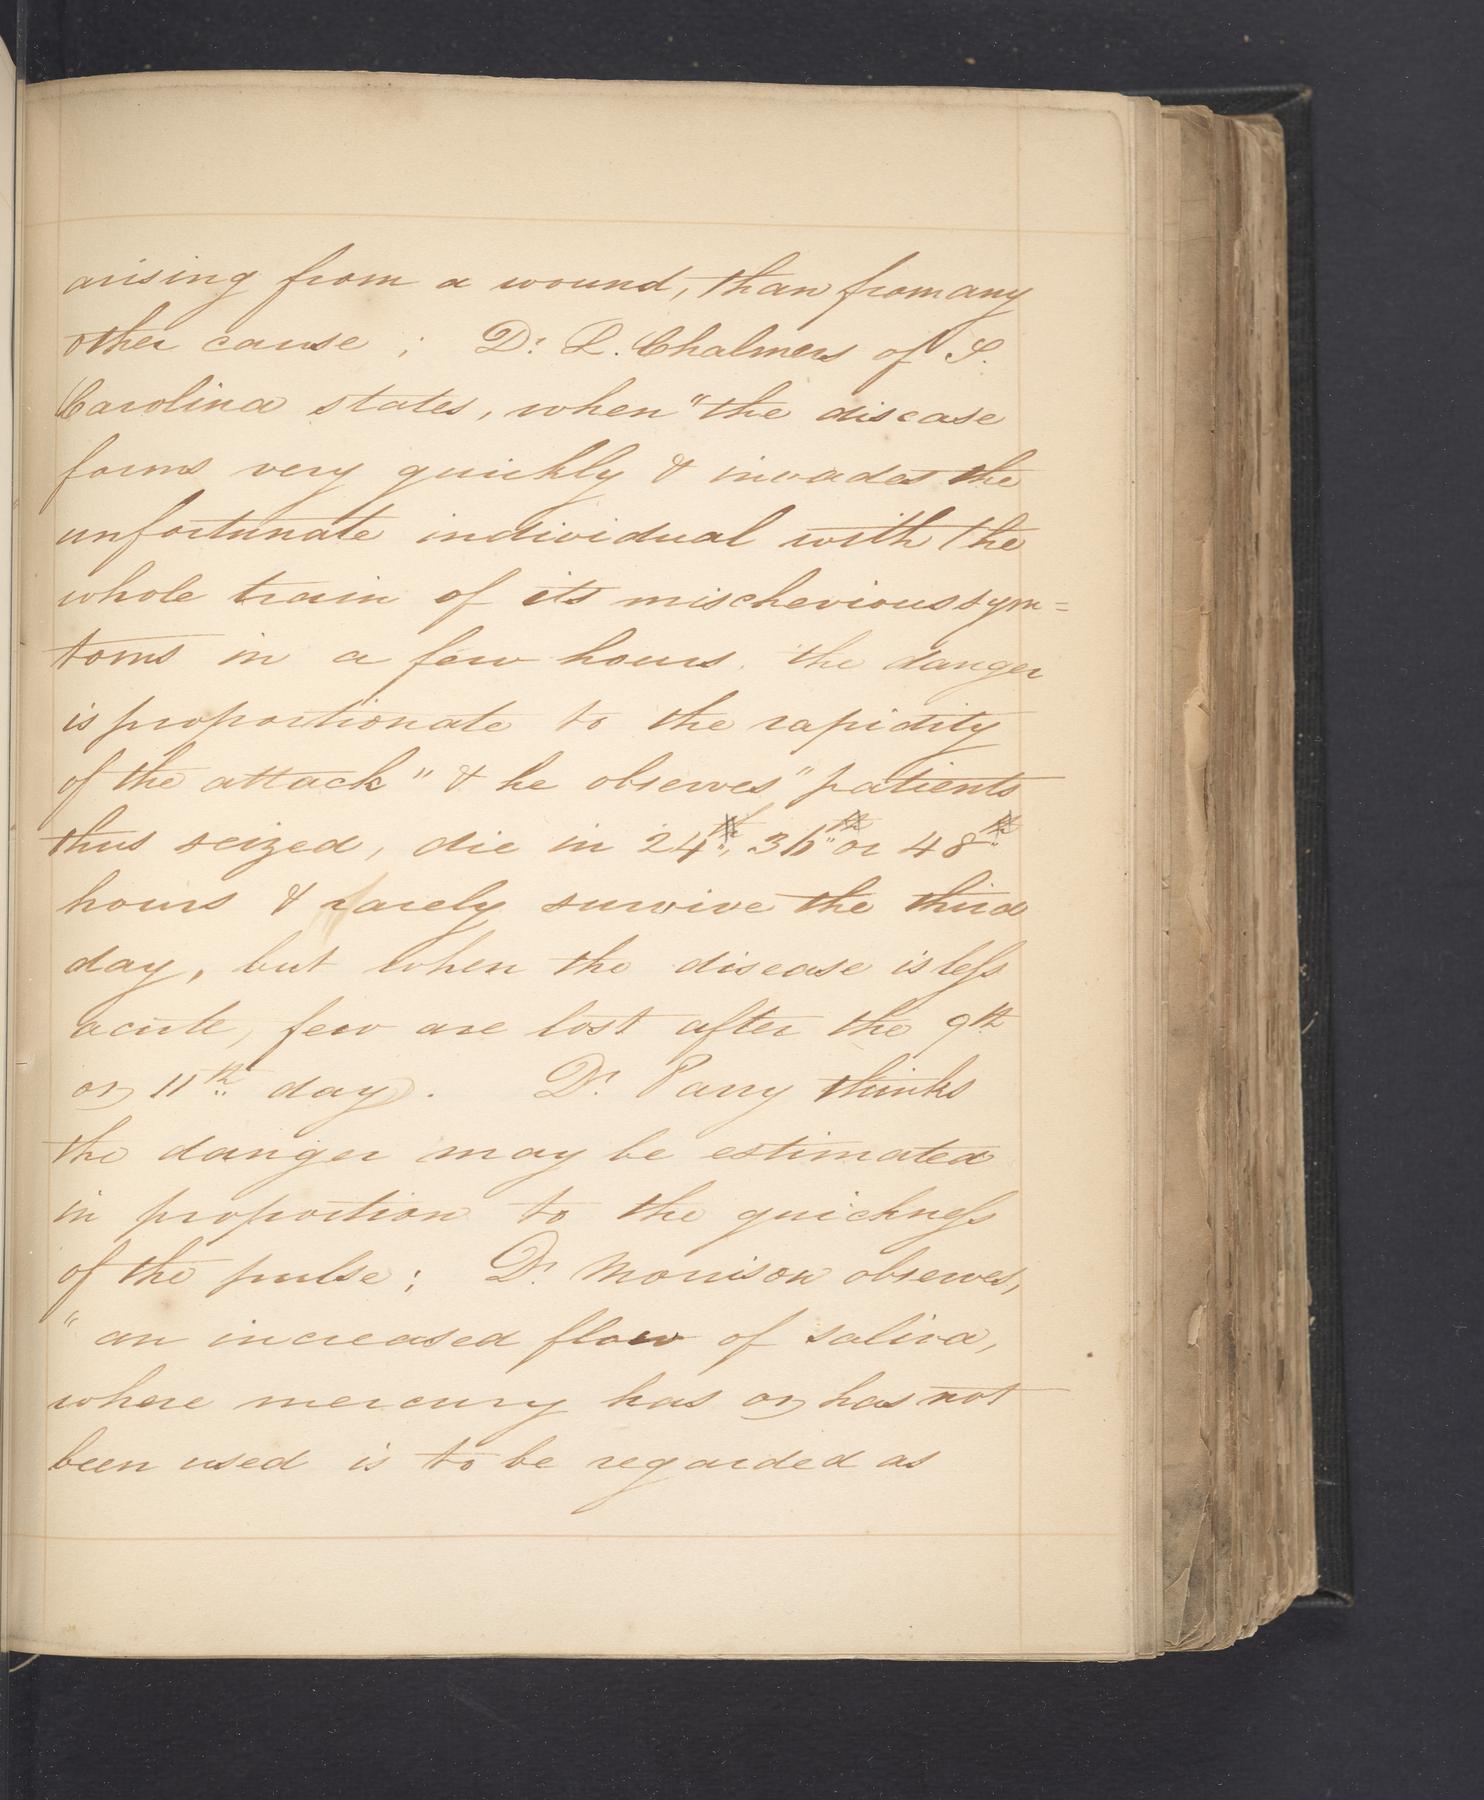 arising from a wound, than from any
other cause ; Dr. L. Chalmers of S.
Carolina states, when "the disease
forms very quickly & invades the
unfortunate individual with the
whole train of its mischevious sym=
toms in a few hours. the danger
is proportionate to the rapidity
of the attack" & he observes "patients
thus seized, die in 24th, 36th or 48th
hours & rarely survive the third
day, but when the disease is less
acute, few are lost after the 9th
or 11th day. Dr. Parry thinks
the danger may be estimated
in proportion to the quickness
of the pulse; Dr. Morrison observes,
"an increased flow of saliva,
where mercury has or has not
been used is to be regarded as